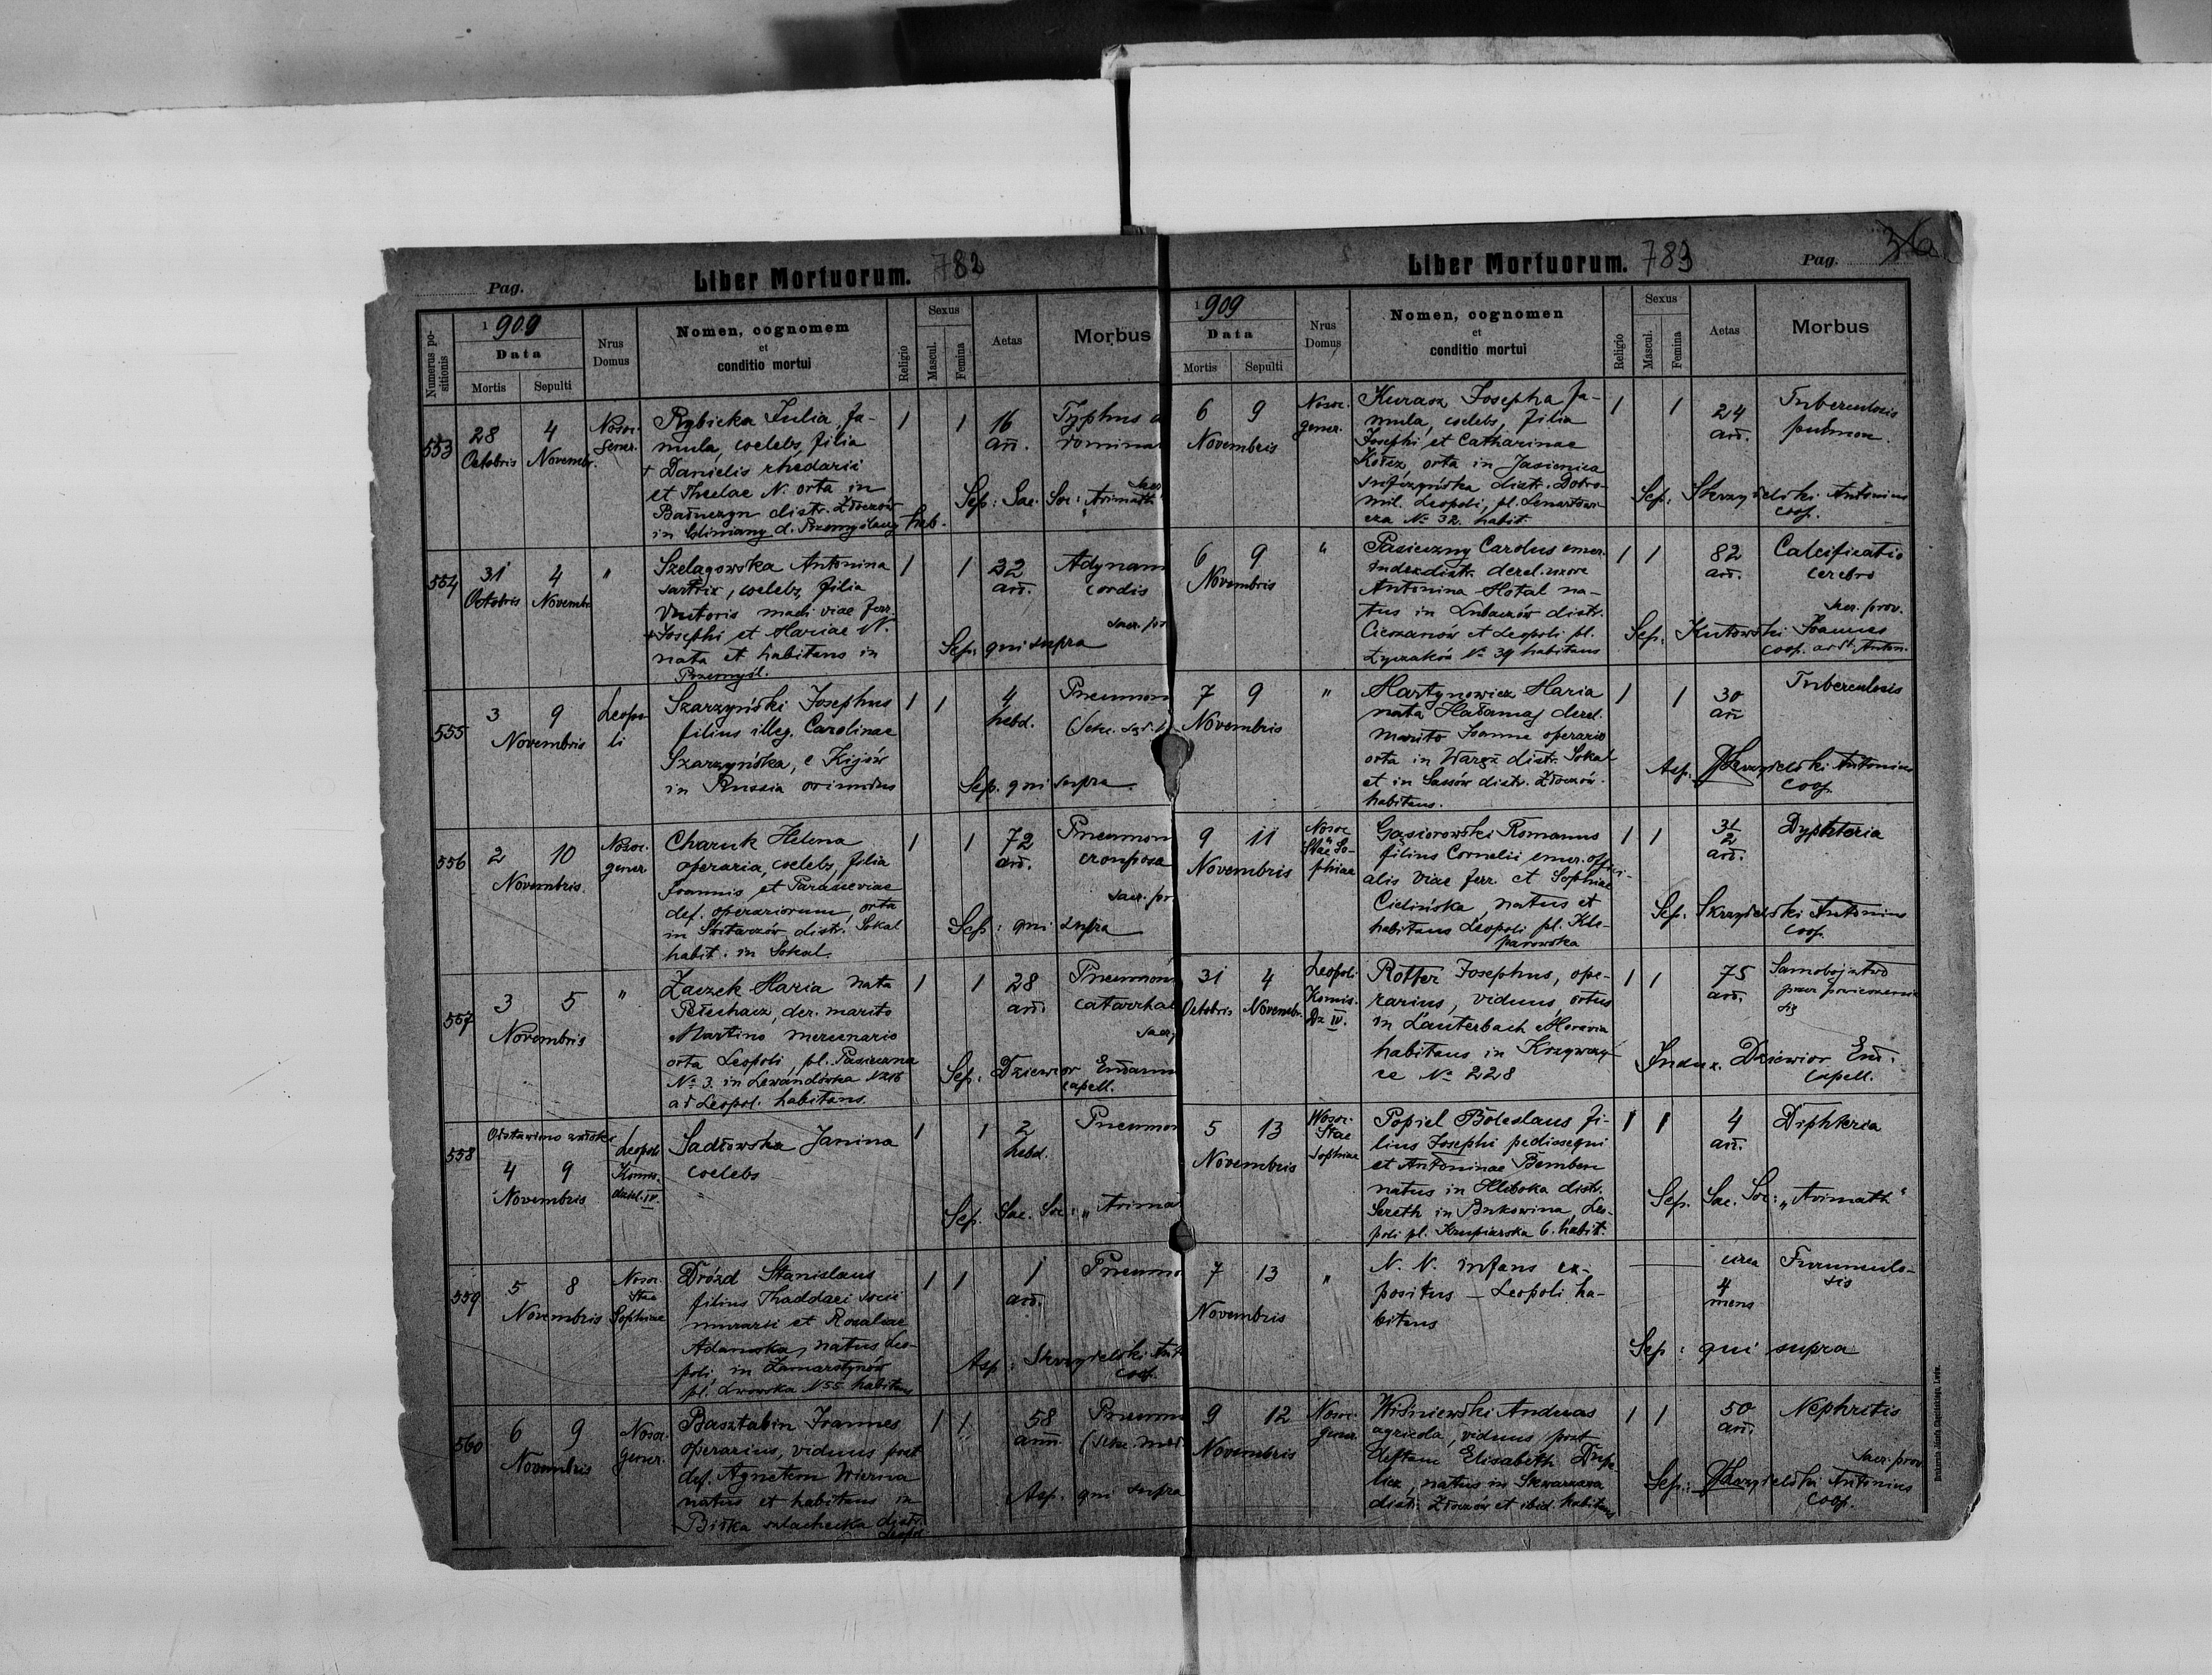 Pag.
Liber Mortuorum. 782
Numerus po-
sitionis
1909
Data
Mortis
Sepulti
Nrus
Domus
Nomen, cognomem
et
conditio mortui
Religio
Sexus
Mascul.
Femina
Aetas
Morbus
553
28
Octobris
4
Novembr.
Nosoc.
gener.
Rybicka Julia fa-
mula, coelebs, filia
+ Danielis rhedarii
et Theclae N. orta in
distr. Złoczów
in Gliniany d. Przemyślany hab.
1
1
16
ann.
Typhus
Sep: Sac. Soc: Arimath
554
31
Octobris
4
Novembr
"
Szelagowska Antonina
sartrix, coelebs, filia
viae ferr.
+ Josephi et Mariae N.
nata et habitans in
Przemyśl.
1
1
32
ann.
Adynam
cordis
Sep: qui supra
555
3
9
Novembris
Leopo-
li
Szarzyński Josephus
filius illeg. Carolinae
Szarzyńska, e Kijów
in Russia oriundus
1
1
4
hebd.
Pneumon
Sep. qui supra
556
2
10
Novembris.
Nosoc.
gener.
Charuk Helena
operaria, coelebs, filia
Joannis, et Parasceviae
def. operariorum, orta
in Switarzów distr. Sokal
habit. in Sokal.
1
1
72
ann.
Pneumon
crouposa
Sep: qui supra
557
3
5
Novembris
"
Zaczek Maria nata
der. marito
Martino mercenario
orta Leopoli, pl. Pasieczna
No 3. in Lewandówka
ad Leopol. habitans.
1
1
28
ann.
Pneumon
catarrhal
Sep: Dziewior
capell.
558
Odstawiono zwłoki
4
9
Novembris
Leopoli
Komis.
dziel. IV.
Sadłowska Janina
coelebs
1
1
2
hebd.
Pneumon
Sep. Sac. Soc: „Arima
559
5
8
Novembris
Nosoc.
Stae
Sophiae
Drózd Stanislaus
filius Thaddaei socii
murarii et Rosaliae
Adamska, natus Leo-
poli, in Zamarstynów
pl. Lwowska N 55 habitans
1
1
1
ann.
Pneumo
Asp: Skrzydelski Ant
coop.
560
6
9
Novembris
Nosoc.
gener.
Basztabin Joannes
operarius, viduus post
def. Agnetem Wierna
natus et habitans in
Biłka szlachecka distr.
Leopol
1
1
58
ann
Pneumo
Asp. qui supra
Liber Mortuorum. 783
Pag.
1909
Data
Mortis
Sepulti
Nrus
Domus
Nomen, cognomen
et
conditio mortui
Religio
Sexus
Mascul.
Femina
Aetas
Morbus
6
9
Novembris
Nosoc.
gener.
Kurasz Josepha fa-
mula, coelebs, filia
Josephi et Catharinae
orta in Jasienica
distr. Dobro-
mil. Leopoli, pl. Lenartowi-
cza No 32. habit.
1
1
24
ann.
Tuberculosis
pulmon.
Sep: Skrzydelski Antonius
coop.
6
9
Novembris
"
Pasieczny Carolus emer.
derel. uxore
Antonina Hotal na-
tus in Lubaczów distr.
Cieszanów et Leopoli pl.
Łyczaków No 39 habitans
1
1
82
ann.
Calcificatio
cerebro
sacr. prov.
Sep: Kutowski Joannes
coop. ad St. Anton.
7
9
Novembris
"
Martynowicz Maria
nata Hałamaj derel.
marito Joanne operario
orta in Waręż distr. Sokal
et in Sassów distr. Złoczów.
habitans.
1
1
30
ann
Tuberculosis
Asp: Skrzydelski Antonius
coop.
9
11
Novembris
Nosoc
Stae So-
phiae
Gąsiorowski Romanus
filius Cornelii emer. offici-
alis viae ferr. et Sophiae
Cielińska, natus et
habitans Leopoli pl. Kle-
parowska
1
1
ann.
Dyphteria
Sep: Skrzydelski Antonius
coop.
31
Octobris
4
Novembr.
Leopoli
Komis.
Dz IV.
Rotter Josephus, ope-
rarius, viduus, ortus
in Lauterbach Moravia
habitans in Krzywczy-
ce No 228
1
1
75
ann.
Samobójstwo
przez powieszenie
się
Indux. Dziewior Em.
capell.
5
13
Novembris
Nosoc.
Stae
Sophiae
Popiel Boleslaus fi-
lius Josephi pedissequi
et Antoninae Bemben
natus in Hliboka distr.
Sereth in Bukowina, Leo-
poli pl. Krupiarska 6. habit.
1
1
4
ann.
Diphteria
Sep. Sac. Soc: „Arimath"
7
13
Novembris
"
N. N. infans ex-
positus – Leopoli ha-
bitans
circa
4
mens
Furunculo-
sis
Sep: qui supra
9
12
Novembris
Nosoc.
gener.
Wiśniewski Andreas
agricola, viduus post
deftam Elisabeth
natus in Skwarzawa
distr. Złoczów et ibid. habitans
1
1
50
ann.
Nephritis
sacr. prov
Sep: Skrzydelski Antonius
coop.